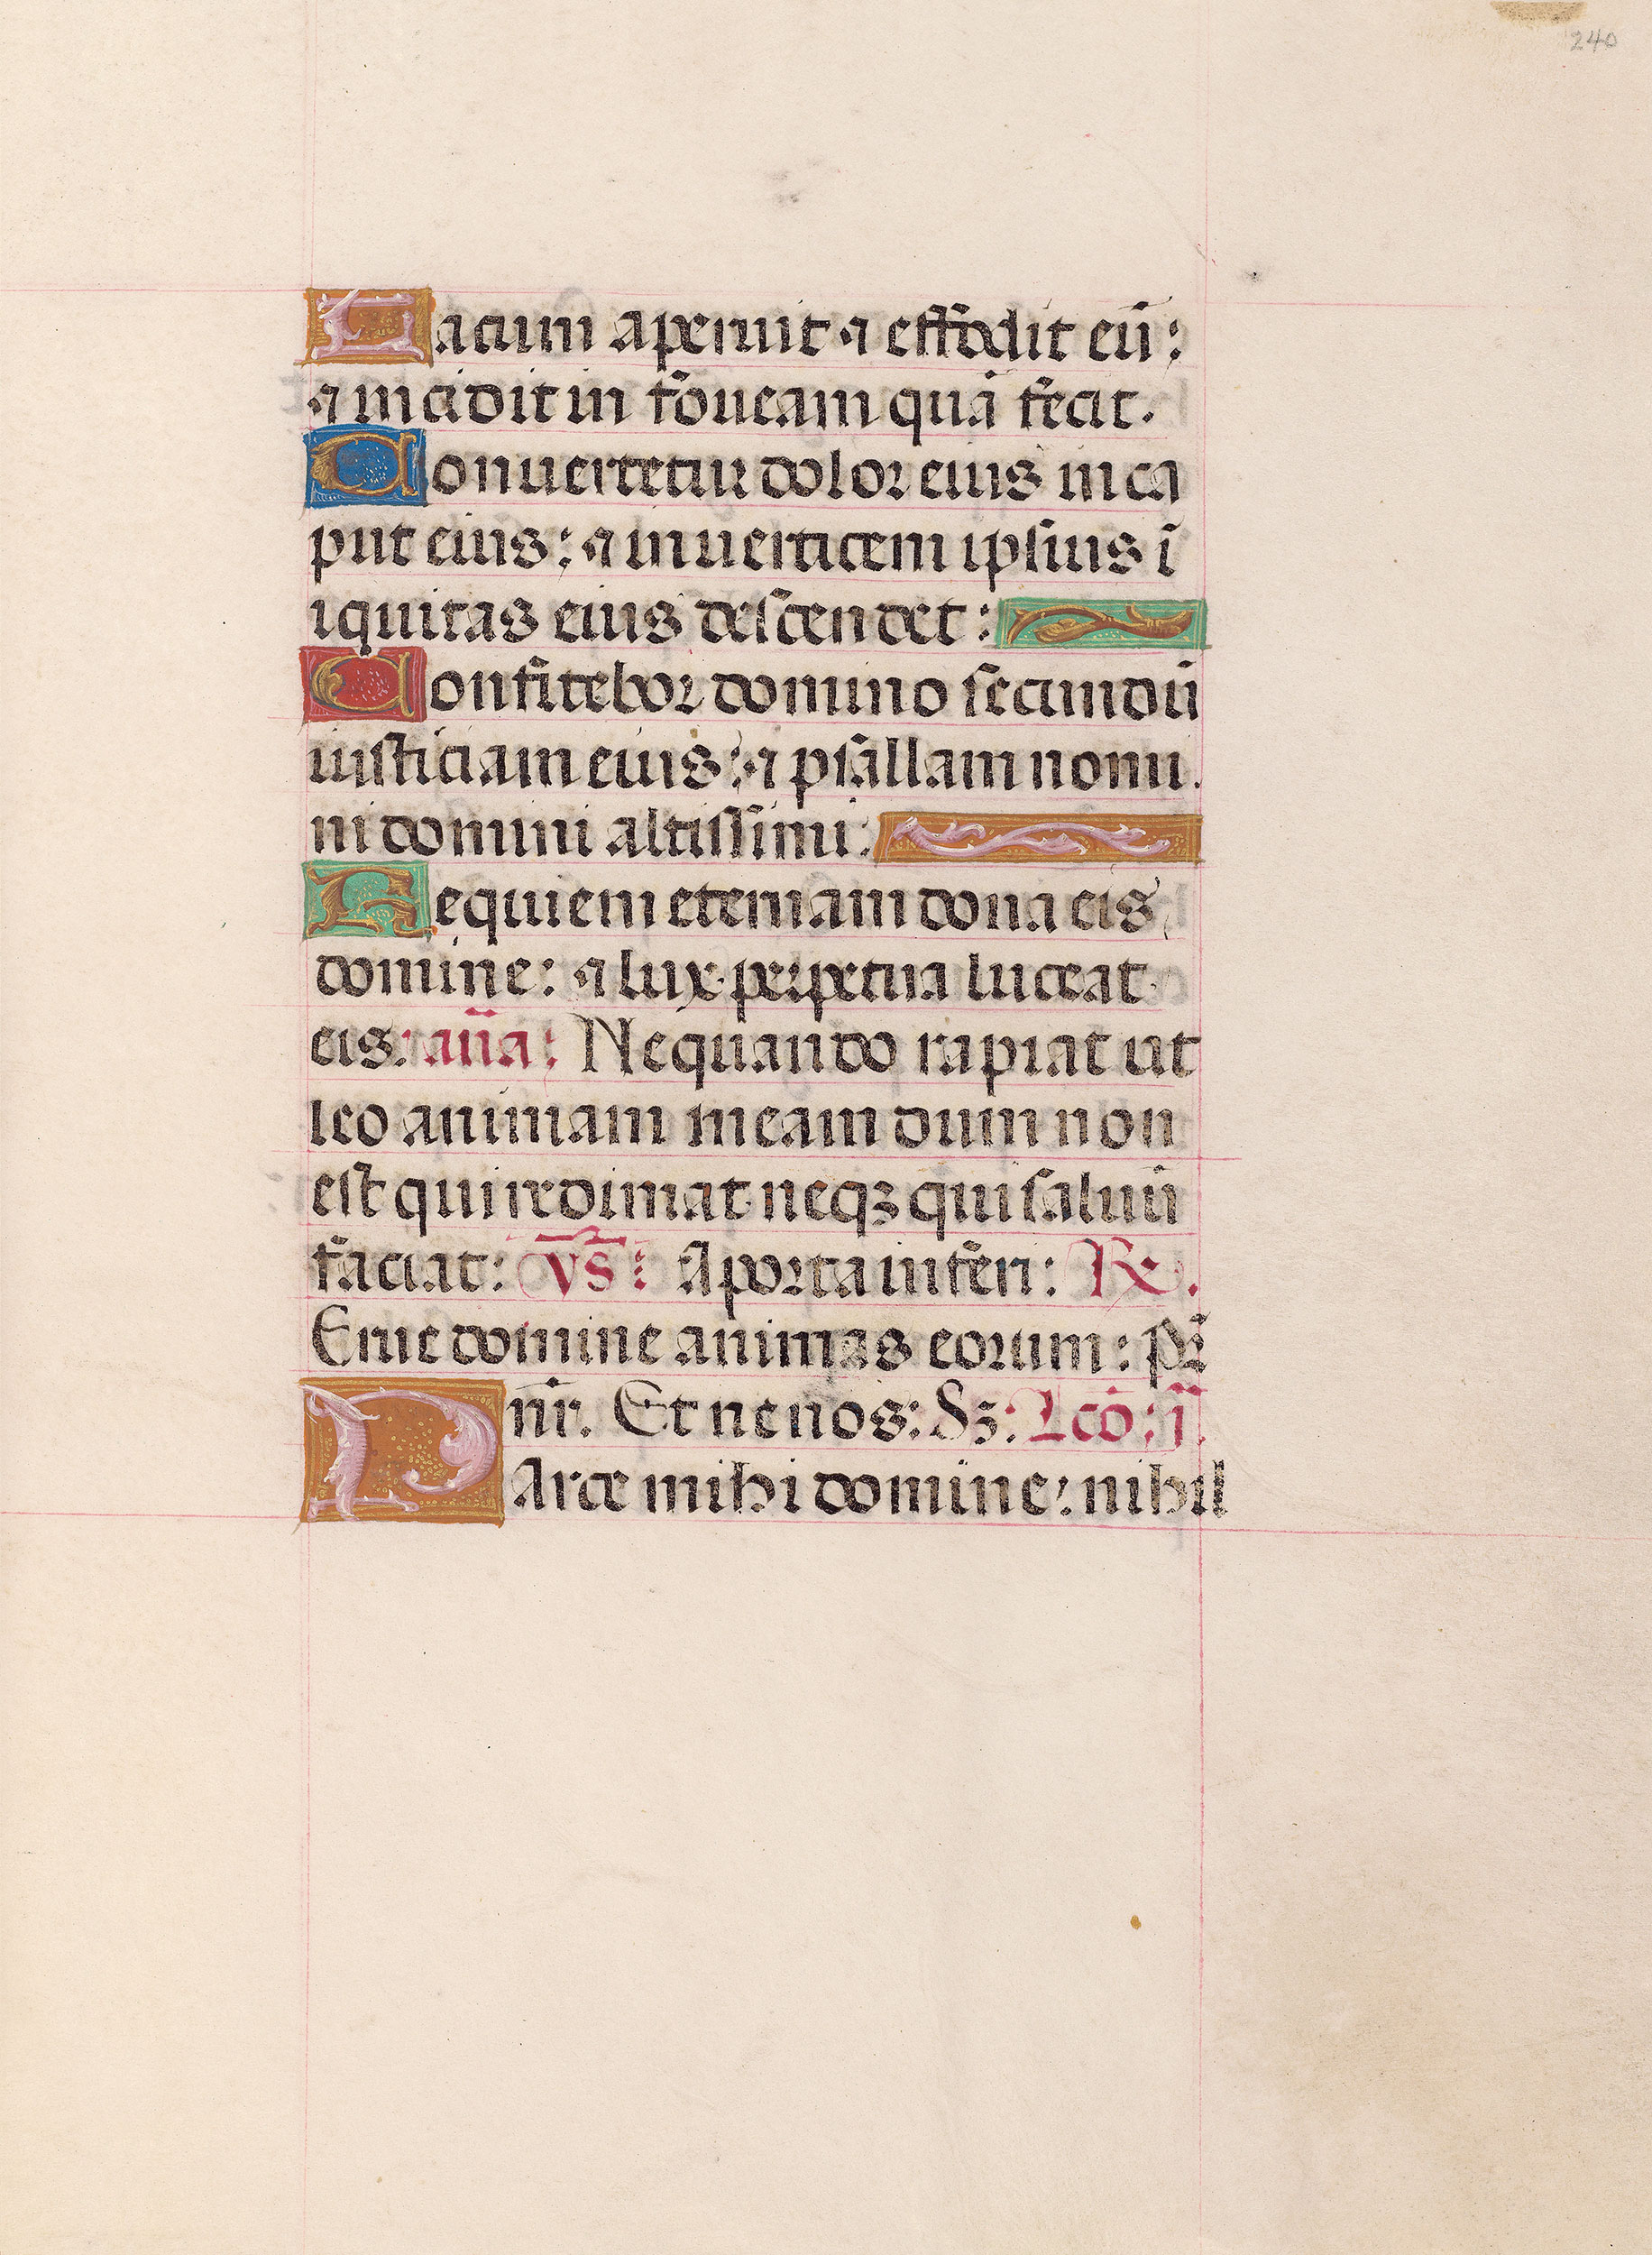 240
Lacum aperuit ⁊ effodit eū:
⁊ incidit in foueam quā fecit.
Conuertetur dolor eius in ca
put eius: ⁊ in uerticem ipsius ī
iquitas eius descendet:
Confitebor domino secundū
iusticiam eius: ⁊ psallam nomi.
ni domini altissimi:
Requiem eternam dona eis
domine: ⁊ lux perpetua luceat
eis: an̄a: Ne quando rapiat ut
leo animam meam dum non
est qui redimat neqꝫ qui saluū
faciat: vs̄: A porta inferi: ℞.
Erue domine animas eorum: pr̄
nr̄. Et ne nos: Sꝫ: Lcō: j.
PArce mihi domine: nihil